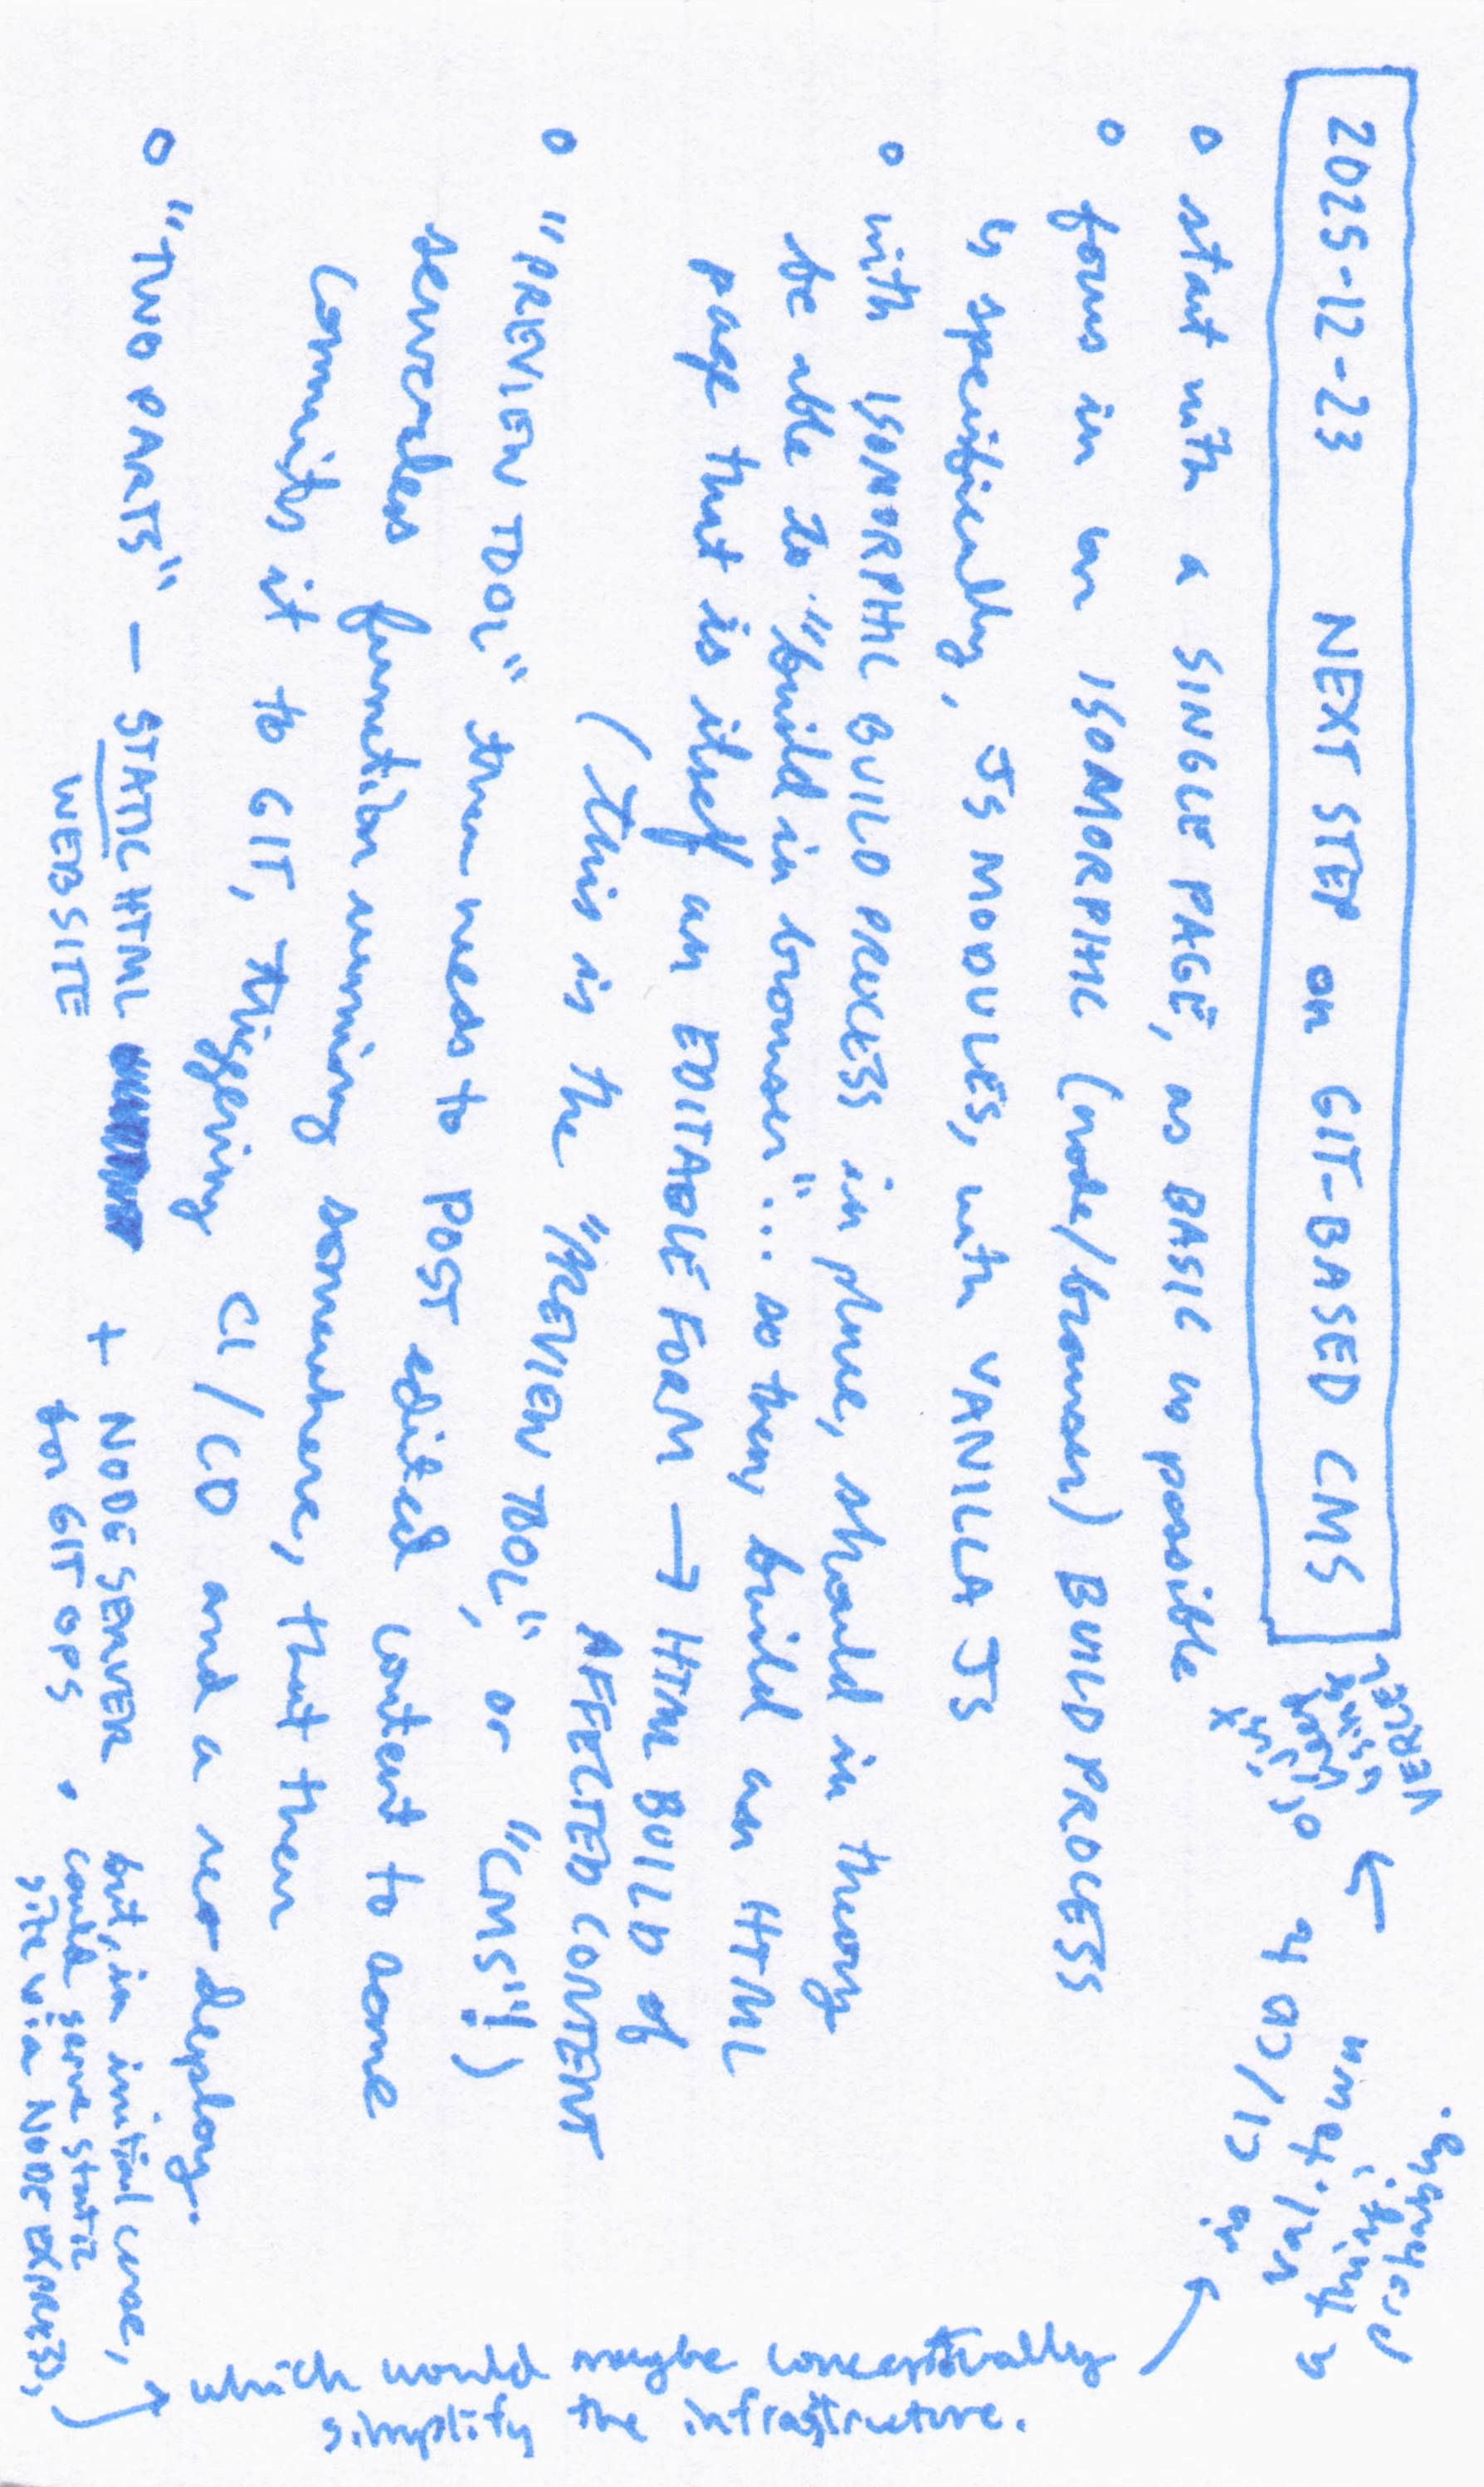 2025-12-23 NEXT STEP on GIT-BASED CMS
o start with a SINGLE PAGE, as BASIC as possible
o focus in on ISOMORPHIC (node/browser) BUILD PROCESS
↳ specifically, JS MODULES, with VANILLA JS
o with ISOMORPHIC BUILD PROCESS in place, should in theory
be able to "build in browser"... so then, build an HTML
page that is itself an EDITABLE FORM → HTML BUILD of
AFFECTED CONTENT
(this is the "PREVIEW TOOL", or "CMS"!)
o "PREVIEW TOOL" then needs to POST edited content to some
serverless function running somewhere, that then
commits it to GIT, triggering CI/CD and a re-deploy.
o "TWO PARTS" - STATIC HTML
WEBSITE
+ NODE SERVER
for GIT OPS
• but, in initial case,
could serve static
site via NODE EXPRESS,
→ which would maybe conceptually
simplify the infrastructure.
CI/CD
VERCEL